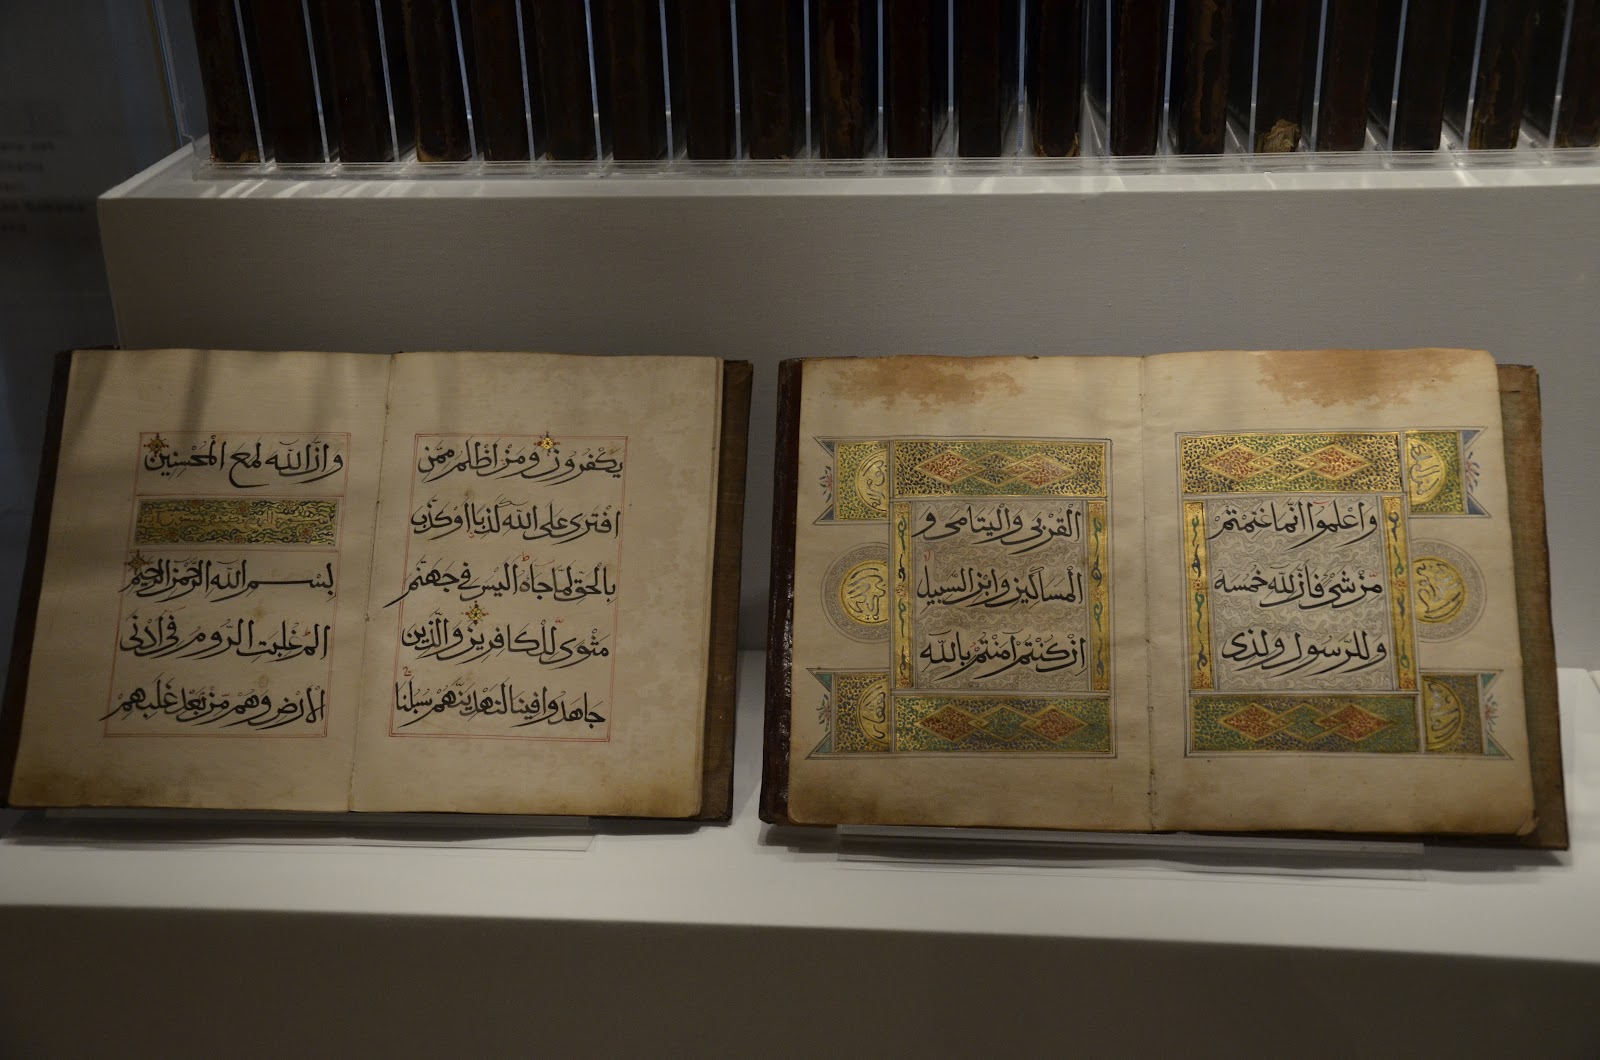 واعلموا انما غنمتم
من شيء فان لله خمسه
وللرسول ولذي
القربى واليتامى و
المساكين وابن السبيل
ان كنتم آمنتم بالله
يكفرون ومن اظلم ممن
افترى على الله كذبا او كذب
بالحق لما جاءه اليس في جهنم
مثوى للكافرين والذين
جاهدوا فينا لنهدينهم سبلنا
وان الله لمع المحسنين
بسم الله الرحمن الرحيم
الم غلبت الروم في ادنى
الارض وهم من بعد غلبهم